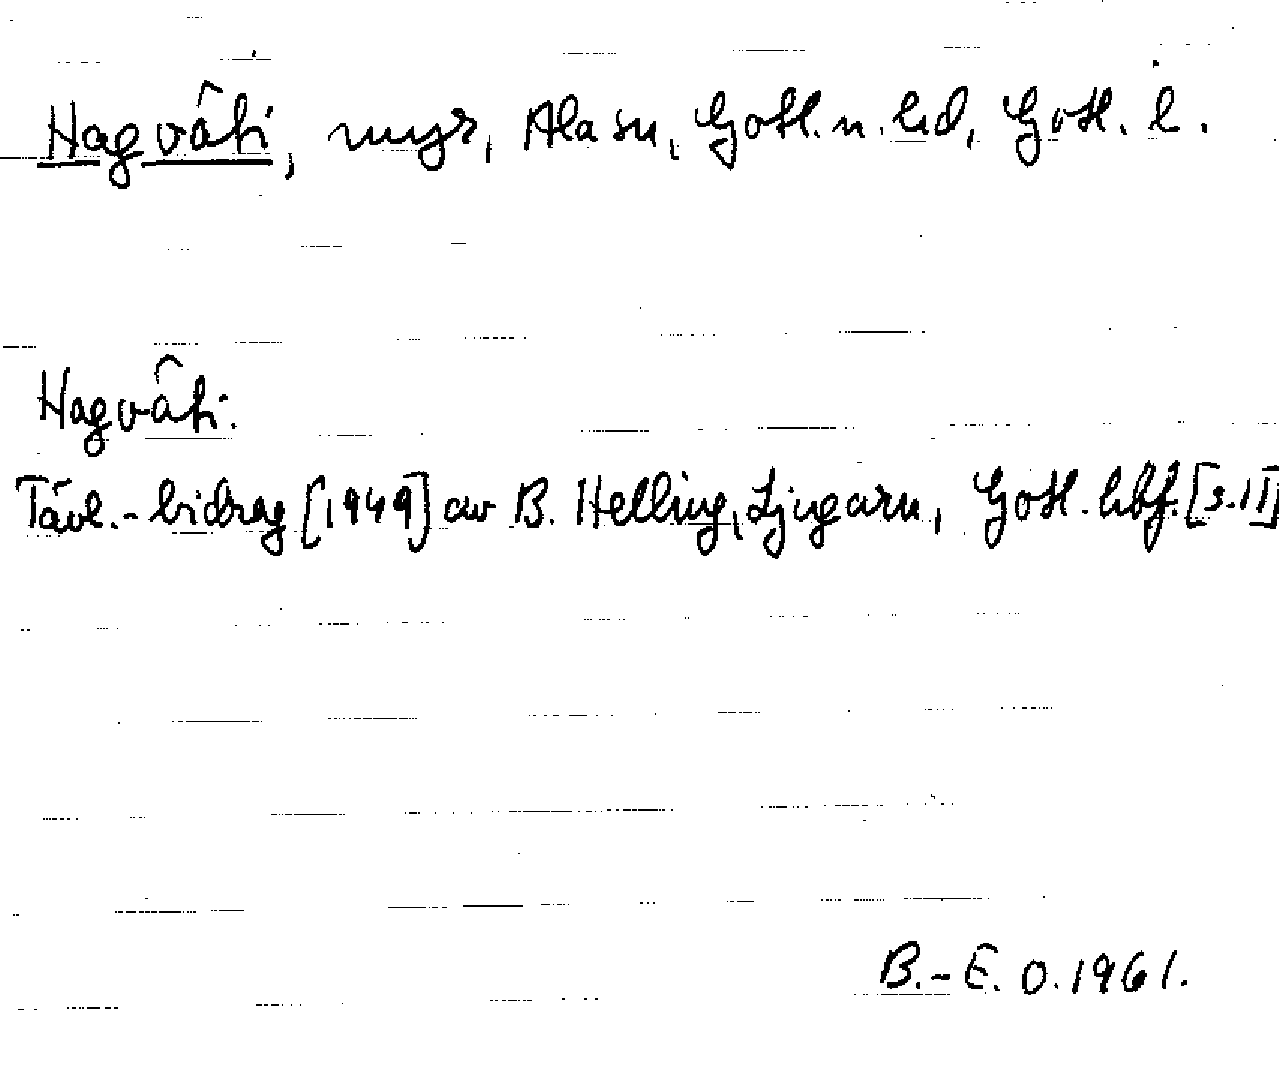 Hagvâti, myr, Ala sn, Gotl. n. hd, Gotl. l.
Hagvâti.
Tävl.-bidrag [1949] av B. Helling, Ljugarn, Gotl. hbf. [s. 11]
B.-E. O. 1961.